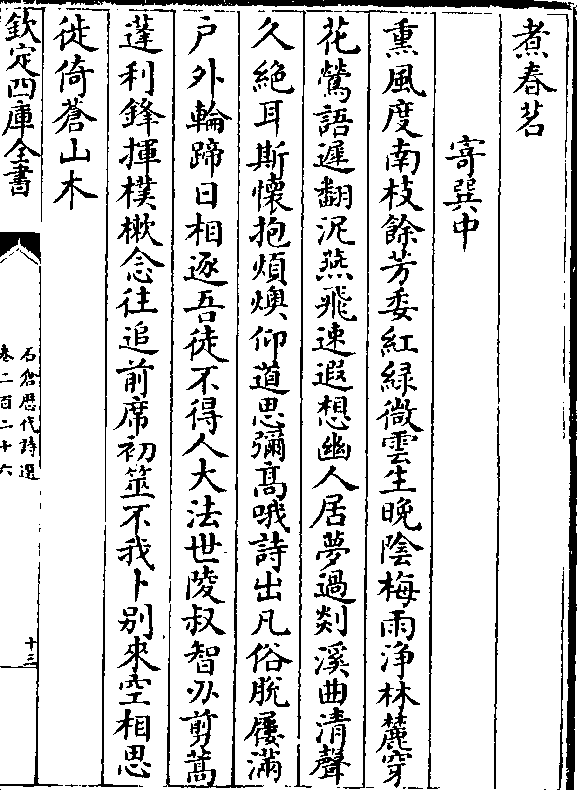 煮春茗
寄巽中
熏風度南枝餘芳委紅緑微雲生晚陰梅雨浄林麓穿
花鶯語遲翻泥燕飛速遐想幽人居夢過剡溪曲清聲
久絶耳斯懷抱煩燠仰道思彌高哦詩出凡俗脱屨滿
户外輪蹄日相逐吾徒不得人大法世陵叔智刅剪蒿
蓬利鋒揮樸樕念往追前席初筮不我卜别來空相思
徙倚蒼山木
欽定四庫全書
石倉歷代詩選
卷二百二十六
十三